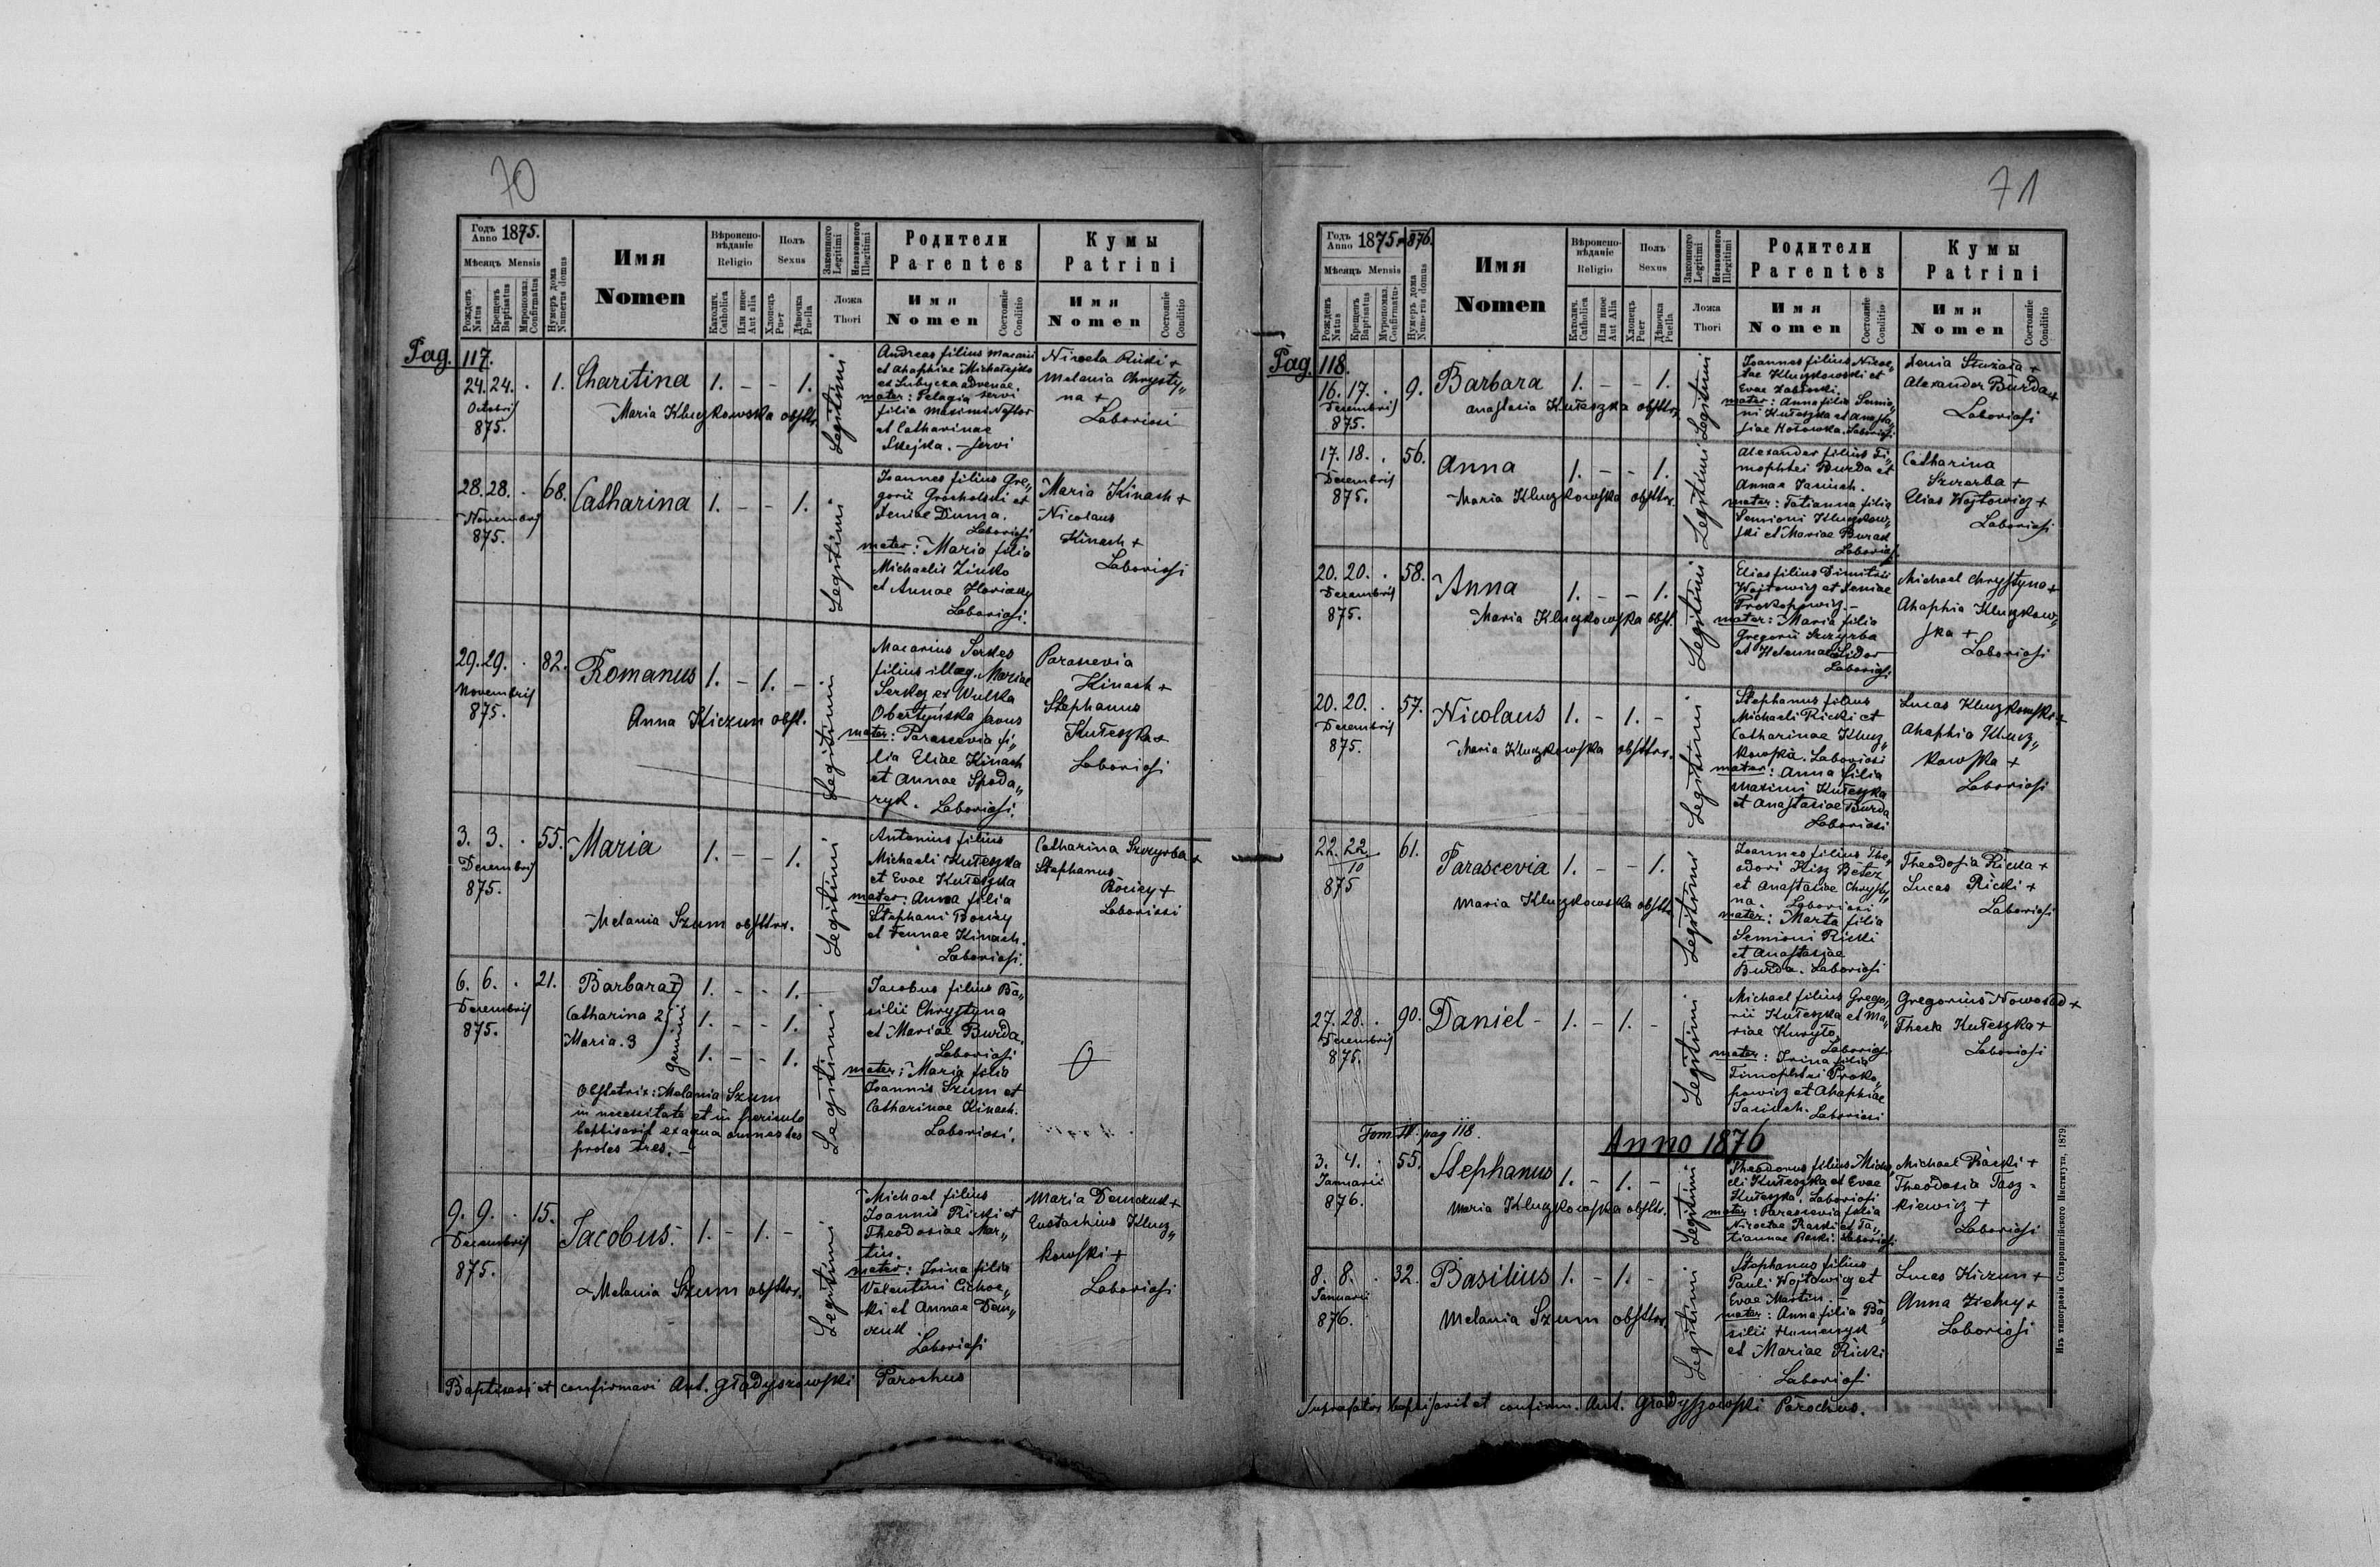 70
Годъ Anno 1875.
Мѣсяцъ Mensis
Рожденъ Natus
Крещенъ Baptisatus
Миропомаз. Confirmatus
Нумеръ дома Numerus domus
Имя
Nomen
Вѣроиспо-
вѣданіе
Religio
Католич. Catholica
Или иное Aut alia
Полъ
Sexus
Хлопецъ Puer
Дѣвочка Puella
Законного Legitimi
Незаконного Illegitimi
Ложа
Thori
Родители
Parentes
Имя
Nomen
Состояніе Conditio
Кумы
Patrini
Имя
Nomen
Состояніе Conditio
Pag. 117.
24. 24. . 1. Charitina 1. - - 1.
Octobris
875.
Maria Kluczkowska obsttr.
Legitimi
Andreas filius Macarii
et Ahaphiae Michałejko
ex Lubycza advenae.
servi
mater: Pelagia
filia Maximi Nestor
et Catharinae
. - servi
Niceta Ricki +
Melania Chrysty„
na +
Laboriosi
28. 28. . 68. Catharina 1. - - 1.
Novembris
875.
Legitimi
Joannes filius Gre„
gorii Grocholski et
Xeniae Duma.
Laboriosi
mater: Maria filia
Michaelis Zinko
et Annae
Laboriosi.
Maria Kinach +
Nicolaus
Kinach +
Laboriosi
29. 29. . 82. Romanus 1. - 1. -
Novembris
875.
Anna Kiczun obst.
Legitimi
Macarius Serkes
filius illeg. Mariae
ex Wulka
Obertyńska
mater: Parascevia fi„
lia Eliae Kinach
et Annae Spoda„
ryk. Laboriosi.
Parascevia
Kinach +
Stephanus
Kułeszka
Laboriosi
3. 3. . 55. Maria 1. - - 1.
Decembris
875.
Melania Szum obsttrx.
Legitimi
Antonius filius
Michaeli Kułeszka
et Evae Kułeszka
mater: Anna filia
Stephani Bociey
et Fennae Kinach.
Laboriosi.
Catharina Szczyrba +
Stephanus
Bociey +
Laboriosi
6. 6. . 21. Barbara 1) 1. - - 1.
Decembris
875.
Catharina 2) 1. - - 1.
Maria. 3 1. - - 1.
gemini
Obstetrix: Melania Szum
in necessitate et in periculo
baptisavit ex aqua omnes tes
proles tres. -
Legitimi
Jacobus filius Ba„
silii Chrystyna
et Mariae Burda.
Laboriosi
mater: Maria filia
Joannis Szum et
Catharinae Kinach.
Laboriosi.
9. 9. . 15. Jacobus. 1. - 1. -
Decembris
875.
Melania Szum obsttrx.
Legitimi
Michael filius
Joannis Ricki et
Theodosiae Mar„
tin.
mater: Irina filia
Valentini Cichoc„
ki et Annae Dem„
czuk
Laboriosi
Maria Demczuk +
Eustachius Klucz„
kowski +
Laboriosi
Baptisavi et confirmavi Ant. Gładyszowski Parochus
71
Годъ Anno 1875. 876.
Мѣсяцъ Mensis
Рожденъ Natus
Крещенъ Baptisatus
Мѵропомаз. Confirmatus
Нумеръ дома Numerus domus
Имя
Nomen
Вѣроиспо-
вѣданіе
Religio
Католич. Catholica
Или иное Aut Alia
Полъ
Sexus
Хлопецъ Puer
Дѣвочка Puella
Законного Legitimi
Незаконного Illegitimi
Ложа
Thori
Родители
Parentes
Имя
Nomen
Состояніе Conditio
Кумы
Patrini
Имя
Nomen
Состояніе Conditio
Pag. 118.
16. 17. . 9. Barbara 1. - - 1.
Decembris
875.
Anastasia Kułeszka obsttrx
Legitimi
Joannes filius Nice„
tae Kluczkowski et
Evae
mater: Anna filia Semio„
ni Kułeszka et Anasta„
siae Hołowka. Laboriosi
Xenia +
Alexander Burda +
Laboriosi
17. 18. . 56. Anna 1. - - 1.
Decembris
875.
Maria Kluczkowska obsttrx.
Legitimi
Alexander filius Ti„
mophtei Burda et
Annae Jasinch.
mater: Tatianna filia
Semioni Kluczkow„
ski et Mariae Burak
Laboriosi
Catharina
Szczerba +
Elias Wojtowicz +
Laboriosi
20. 20. . 58. Anna 1. - - 1.
Decembris
875.
Maria Kluczkowska obst.
Legitimi
Elias filius Dimitrii
Wojtowicz et Xeniae
Prokopowicz. -
mater: Maria filia
Gregorii Szczyrba
et Helennae Sidor
Laboriosi
Michael Chrystyna +
Ahaphia Kluczkow„
ska +
Laboriosi
20. 20. . 57. Nicolaus 1. - 1. -
Decembris
875.
Maria Kluczkowska obsttrx.
Legitimi
Stephanus filius
Michaeli Ricki et
Catharinae Klucz„
kowska. Laboriosi
mater: Anna filia
Maximi Kułeszka
et Anastasiae Burda
Laboriosi
Lucas Kluczkowski +
Ahaphia Klucz„
kowska +
Laboriosi
22. 22/10 61. Parascevia 1. - - 1.
875
Maria Kluczkowska obsttrx
Legitimi
Joannes filius The„
odori Kisz Beter
et Anastasiae Chrysty„
na. Laboriosi
mater: Marta filia
Semioni Ricki
et Anastasiae
Burda. Laboriosi
Theodosia Ricka +
Lucas Ricki +
Laboriosi
27. 28. . 90. Daniel - 1. - 1. -
Decembris
875.
Legitimi
Michael filius Grego„
rii Kułeszka et Ma„
riae Kuryło.
Laboriosi
mater: Irina filia
Timophtei Proko„
powicz et Ahaphiae
Jasiuch. Laboriosi
Gregorius Nowosad +
Thecla Kułeszka +
Laboriosi
Tom. IV. pag 118.
Anno 1876
3. 4. . 55. Stephanus 1. - 1. -
Januarii
876.
Maria Kluczkowska obsttrx.
Legitimi
Theodorus filius Micha„
eli Kułeszka et Evae
Kułeszka. Laboriosi
mater: Parascevia filia
Nicetae Racki et Ta„
tiannae Racki. Laboriosi
Michael Racki +
Theodosia Tasz=
kiewicz +
Laboriosi
8. 8. . 32. Basilius 1. - 1. -
Januarii
876.
Melania Szum obsttrx.
Legitimi
Stephanus filius
Pauli Wojtowicz et
Evae Martin. -
mater: Anna filia Ba„
silii Humeniuk
et Mariae Ricki
Laboriosi
Lucas Kiczun +
Anna Zielny +
Laboriosi
Suprafatos baptisavit et confirm. Ant. Gładyszowski Parochus.
Изъ типографіи Ставропигійского Института, 1879.